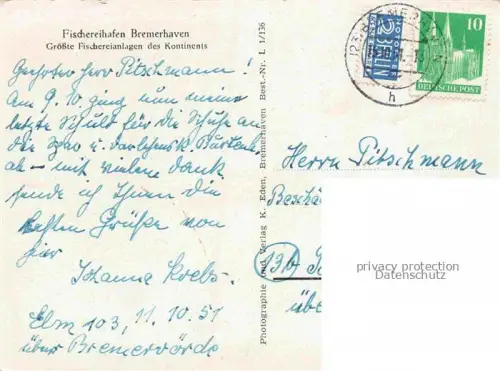 Fischereihafen Bremerhaven
Größte Fischereianlagen des Kontinents
Geehrter Herr Pitschmann!
Am 9. 10. ging nun meine
letzte Schuld für die Schuhe an
die Spar u. Darlehensk.
ab – mit vielem Dank
sende ich Ihnen die
besten Grüße von
hier
Johanna Krebs.
Elm 103, 11. 10. 51
über Bremervörde
Photographie und Verlag K. Eden, Bremerhaven Best.-Nr. L 1/136
NOTOPFER
2 BERLIN
h
10
DEUTSCHE POST
Herrn Pitschmann
privacy protection
Datenschutz
übe